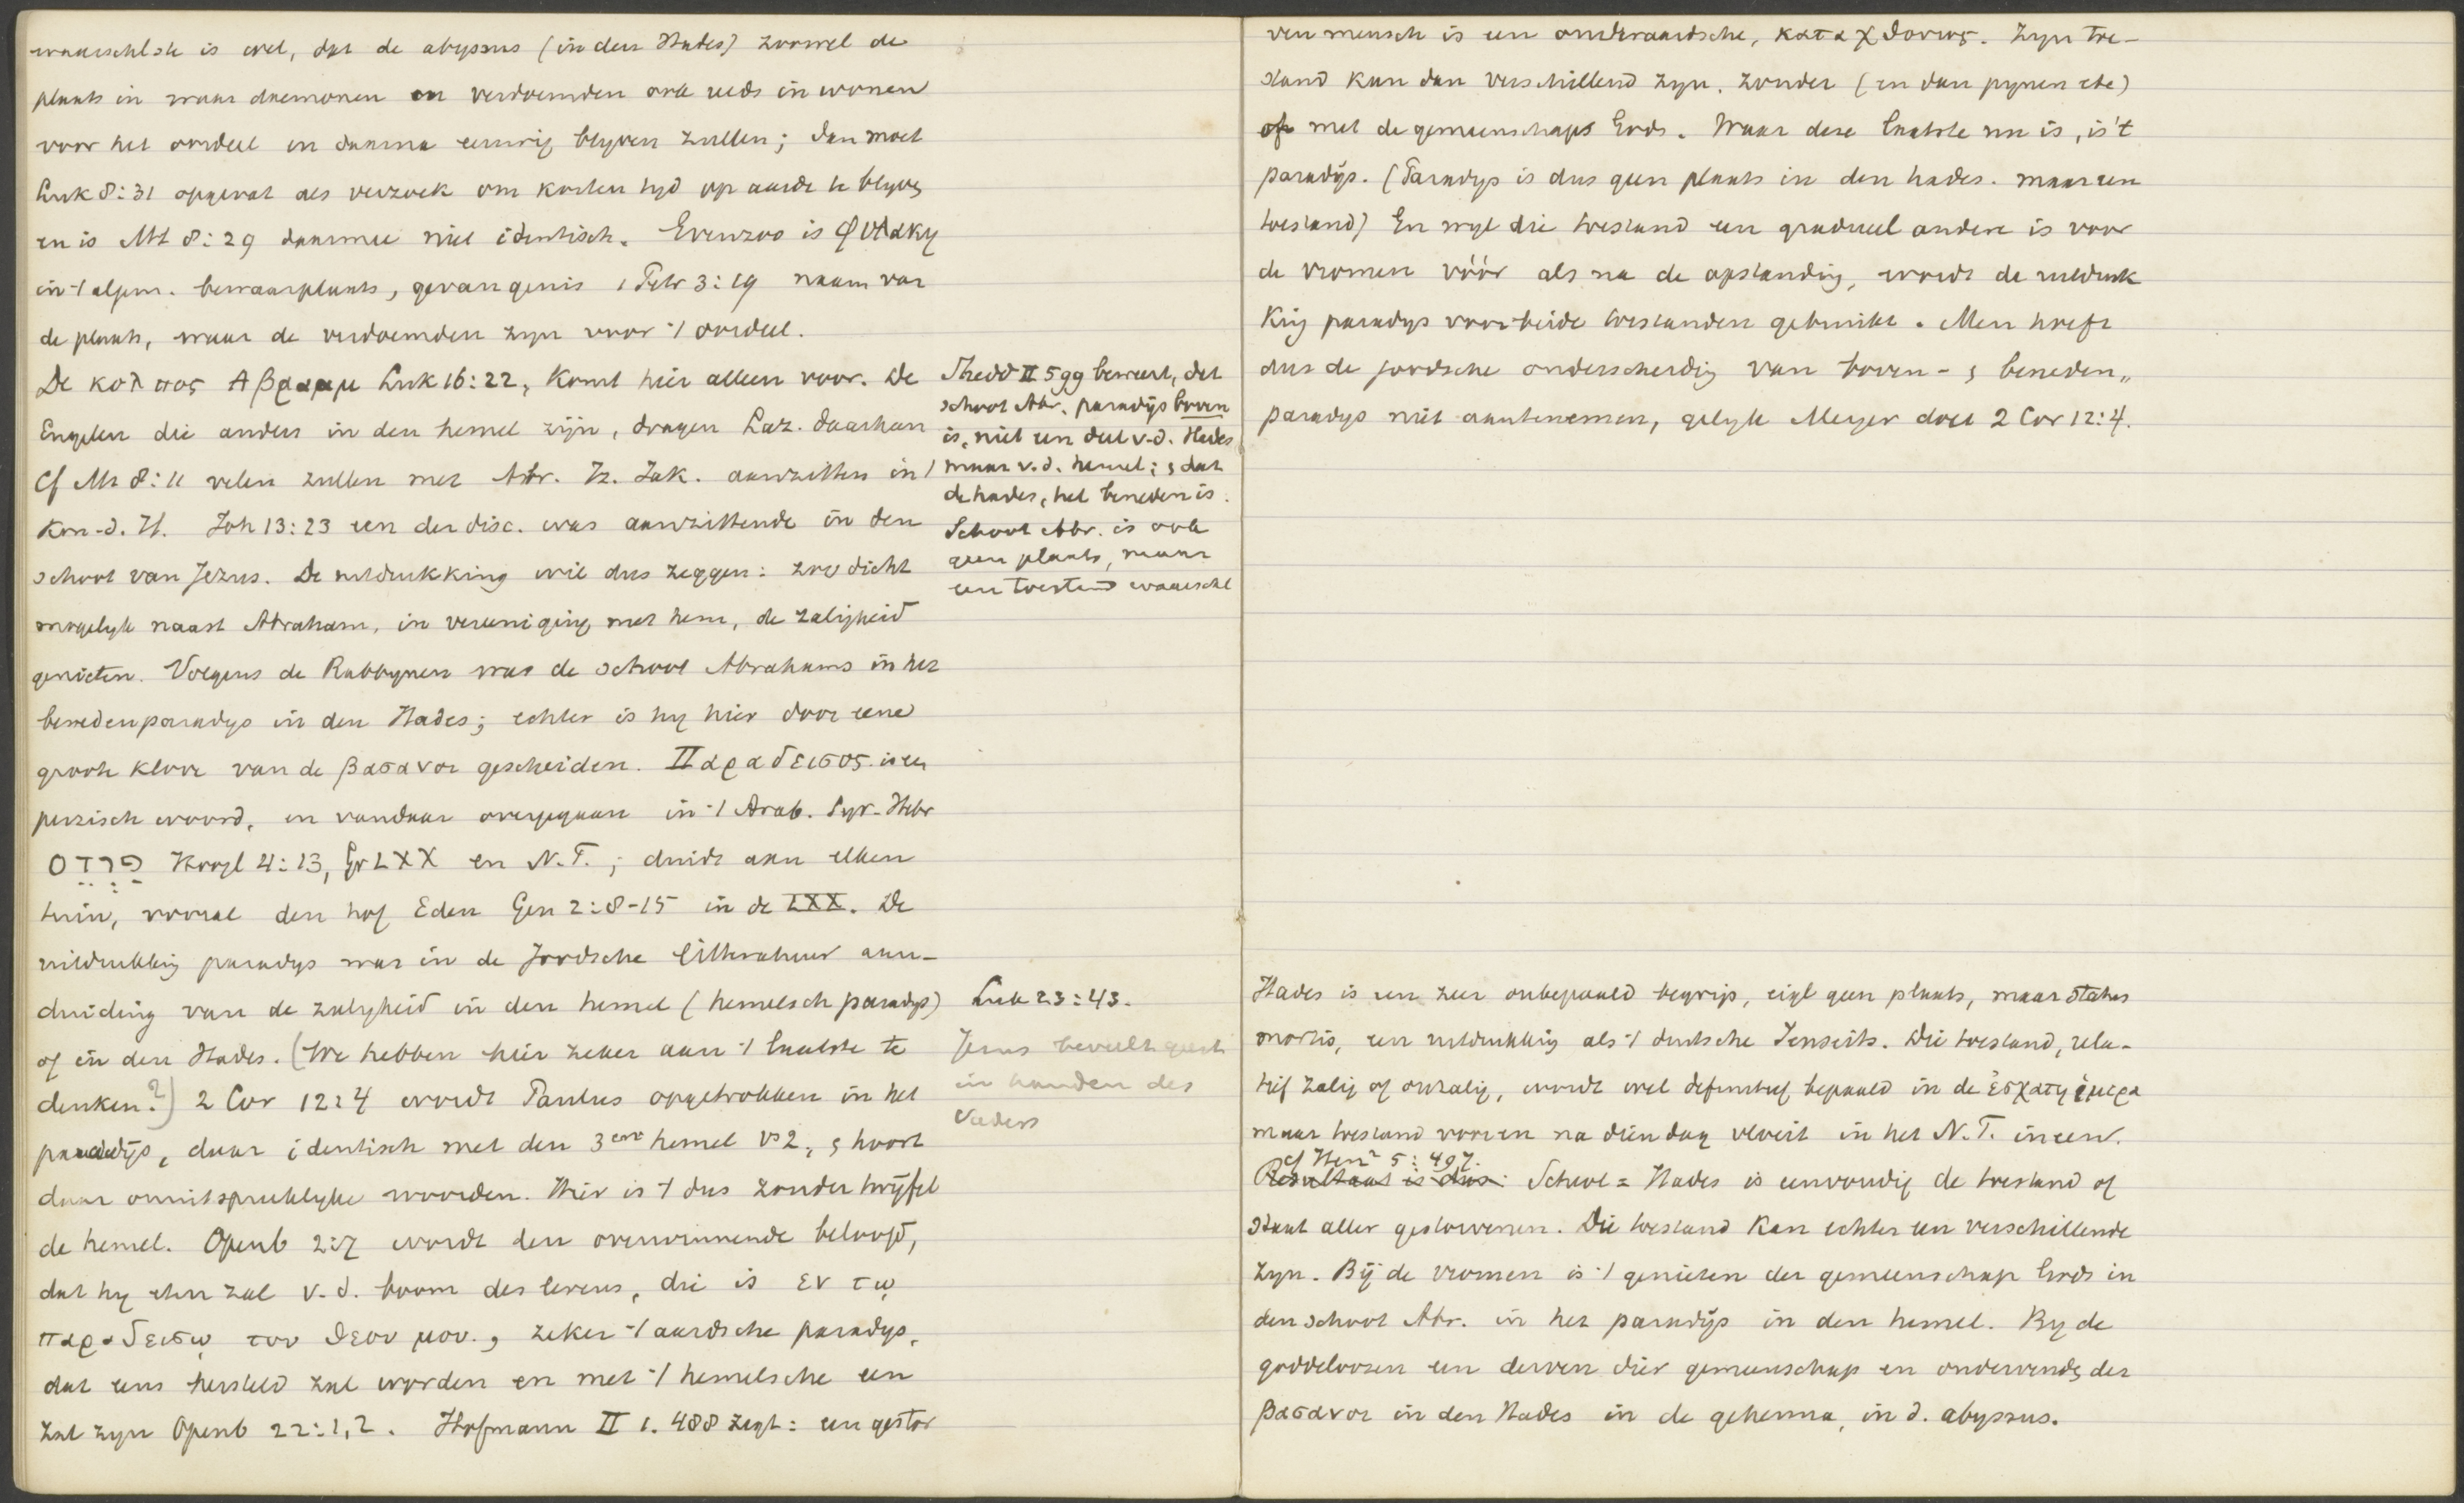 waarschlsk is wel, dat de abyssus (in den Hades) zoowel de
plaats in waar daemonen en verdoemden ook reeds in wonen
voor het oordeel en daarna eeuwig blyven zullen; dan moet
Luk 8:31 opgevat als verzoek om korten tyd op aarde te blyven
en is Mt 8:29 daarmee niet identisch. Evenzoo is φυλακη
in 't algem. bewaarplaats, gevangenis 1 Petr 3:19 naam van
de plaats, waar de verdoemden zyn voor 't oordeel.
De κολπος Αβρααμ Luk 16:22, komt hier alleen voor. De
Engelen die anders in den hemel zijn, dragen Laz. daarhen
Cf Mt 8:11 velen zullen met Abr. Iz. Jak. aanzitten in 't
Kon. d. H. Joh 13:23 een der disc. was aanzittende in den
schoot van Jezus. De uitdrukking wil dus zeggen: zoo dicht
mogelyk naast Abraham, in vereeniging met hem, de zaligheid
genieten. Volgens de Rabbynen was de schoot Abrahams in het
benedenparadys in den Hades; echter is hy hier door eene
groote kloove van de βασανοι gescheiden. Παραδεισος is een
perzisch woord, en vandaar overgegaan in 't Arab. Syr. Hebr
פרדס Hoogl 4:13, Gr LXX en N.T.; duidt aan elken
tuin, vooral den hof Eden Gen 2:8-15 in de LXX. De
uitdrukking paradys was in de Joodsche litteratuur aan-
duiding van de zalygheid in den hemel (hemelsch paradys)
of in den Hades. (We hebben hier zeker aan 't laatste te
denken?) 2 Cor 12:4 wordt Paulus opgetrokken in het
paradijs, daar identisch met den 3en hemel vs 2, & hoort
daar onuitsprekelyke woorden. Hier is 't dus zonder twijfel
de hemel. Openb 2:7 wordt den overwinnende beloofd,
dat hy eten zal v. d. boom des levens, die is εν τω
παραδεισω του θεου μου., zeker 't aardsche paradys,
dat eens hersteld zal worden en met 't hemelsche een
zal zyn Openb 22:1,2. Hofmann II 1. 488 zegt: een gestor
Thedd II 599 beweert, dat
schoot Abr. paradijs boven
is, niet een deel v.d. Hades
maar v.d. hemel; & dat
de hades, het beneden is.
Schoot Abr. is ook
geen plaats, maar
een toestand waarschl
Luk 23:43.
Jezus beveelt geest
in handen des
Vaders
ven mensch is een onderaardsche, καταχθονιος. Zyn toe-
stand kan dan verschillend zyn. zonder (en dan pynen etc)
of met de gemeenschaps Gods. Waar deze laatste nu is, is 't
paradijs. (Paradys is dus geen plaats in den hades. maar een
toestand) En wyl die toestand een gradueel andere is voor
de vromen vóór als na de opstanding, wordt de uitdruk
king paradys voor beide toestanden gebruikt. Men hoeft
dus de joodsche onderscheiding van boven- & beneden„
paradys niet aantenemen, gelyk Meyer doet 2 Cor 12:4.
Hades is een zeer onbepaald begrip, eigl geen plaats, maar status
mortis, een uitdrukking als 't duitsche Jenseits. Die toestand, rela-
tief zalig of onzalig, wordt wel definitief bepaald in de ἐσχατη ἡμερα
maar toestand voor en na dien dag vloeit in het N.T. ineen.
cf Hen 5:497.
Resultaat is dus: Scheol = Hades is eenvoudig de toestand of
staat aller gestorvenen. Die toestand kan echter een verschillende
zyn. Bij de vromen is 't genieten der gemeenschap Gods in
den schoot Abr. in het paradijs in den hemel. By de
goddeloozen een derven dier gemeenschap en ondervinden der
βασανοι in den Hades in de gehenna, in d. abyssus.